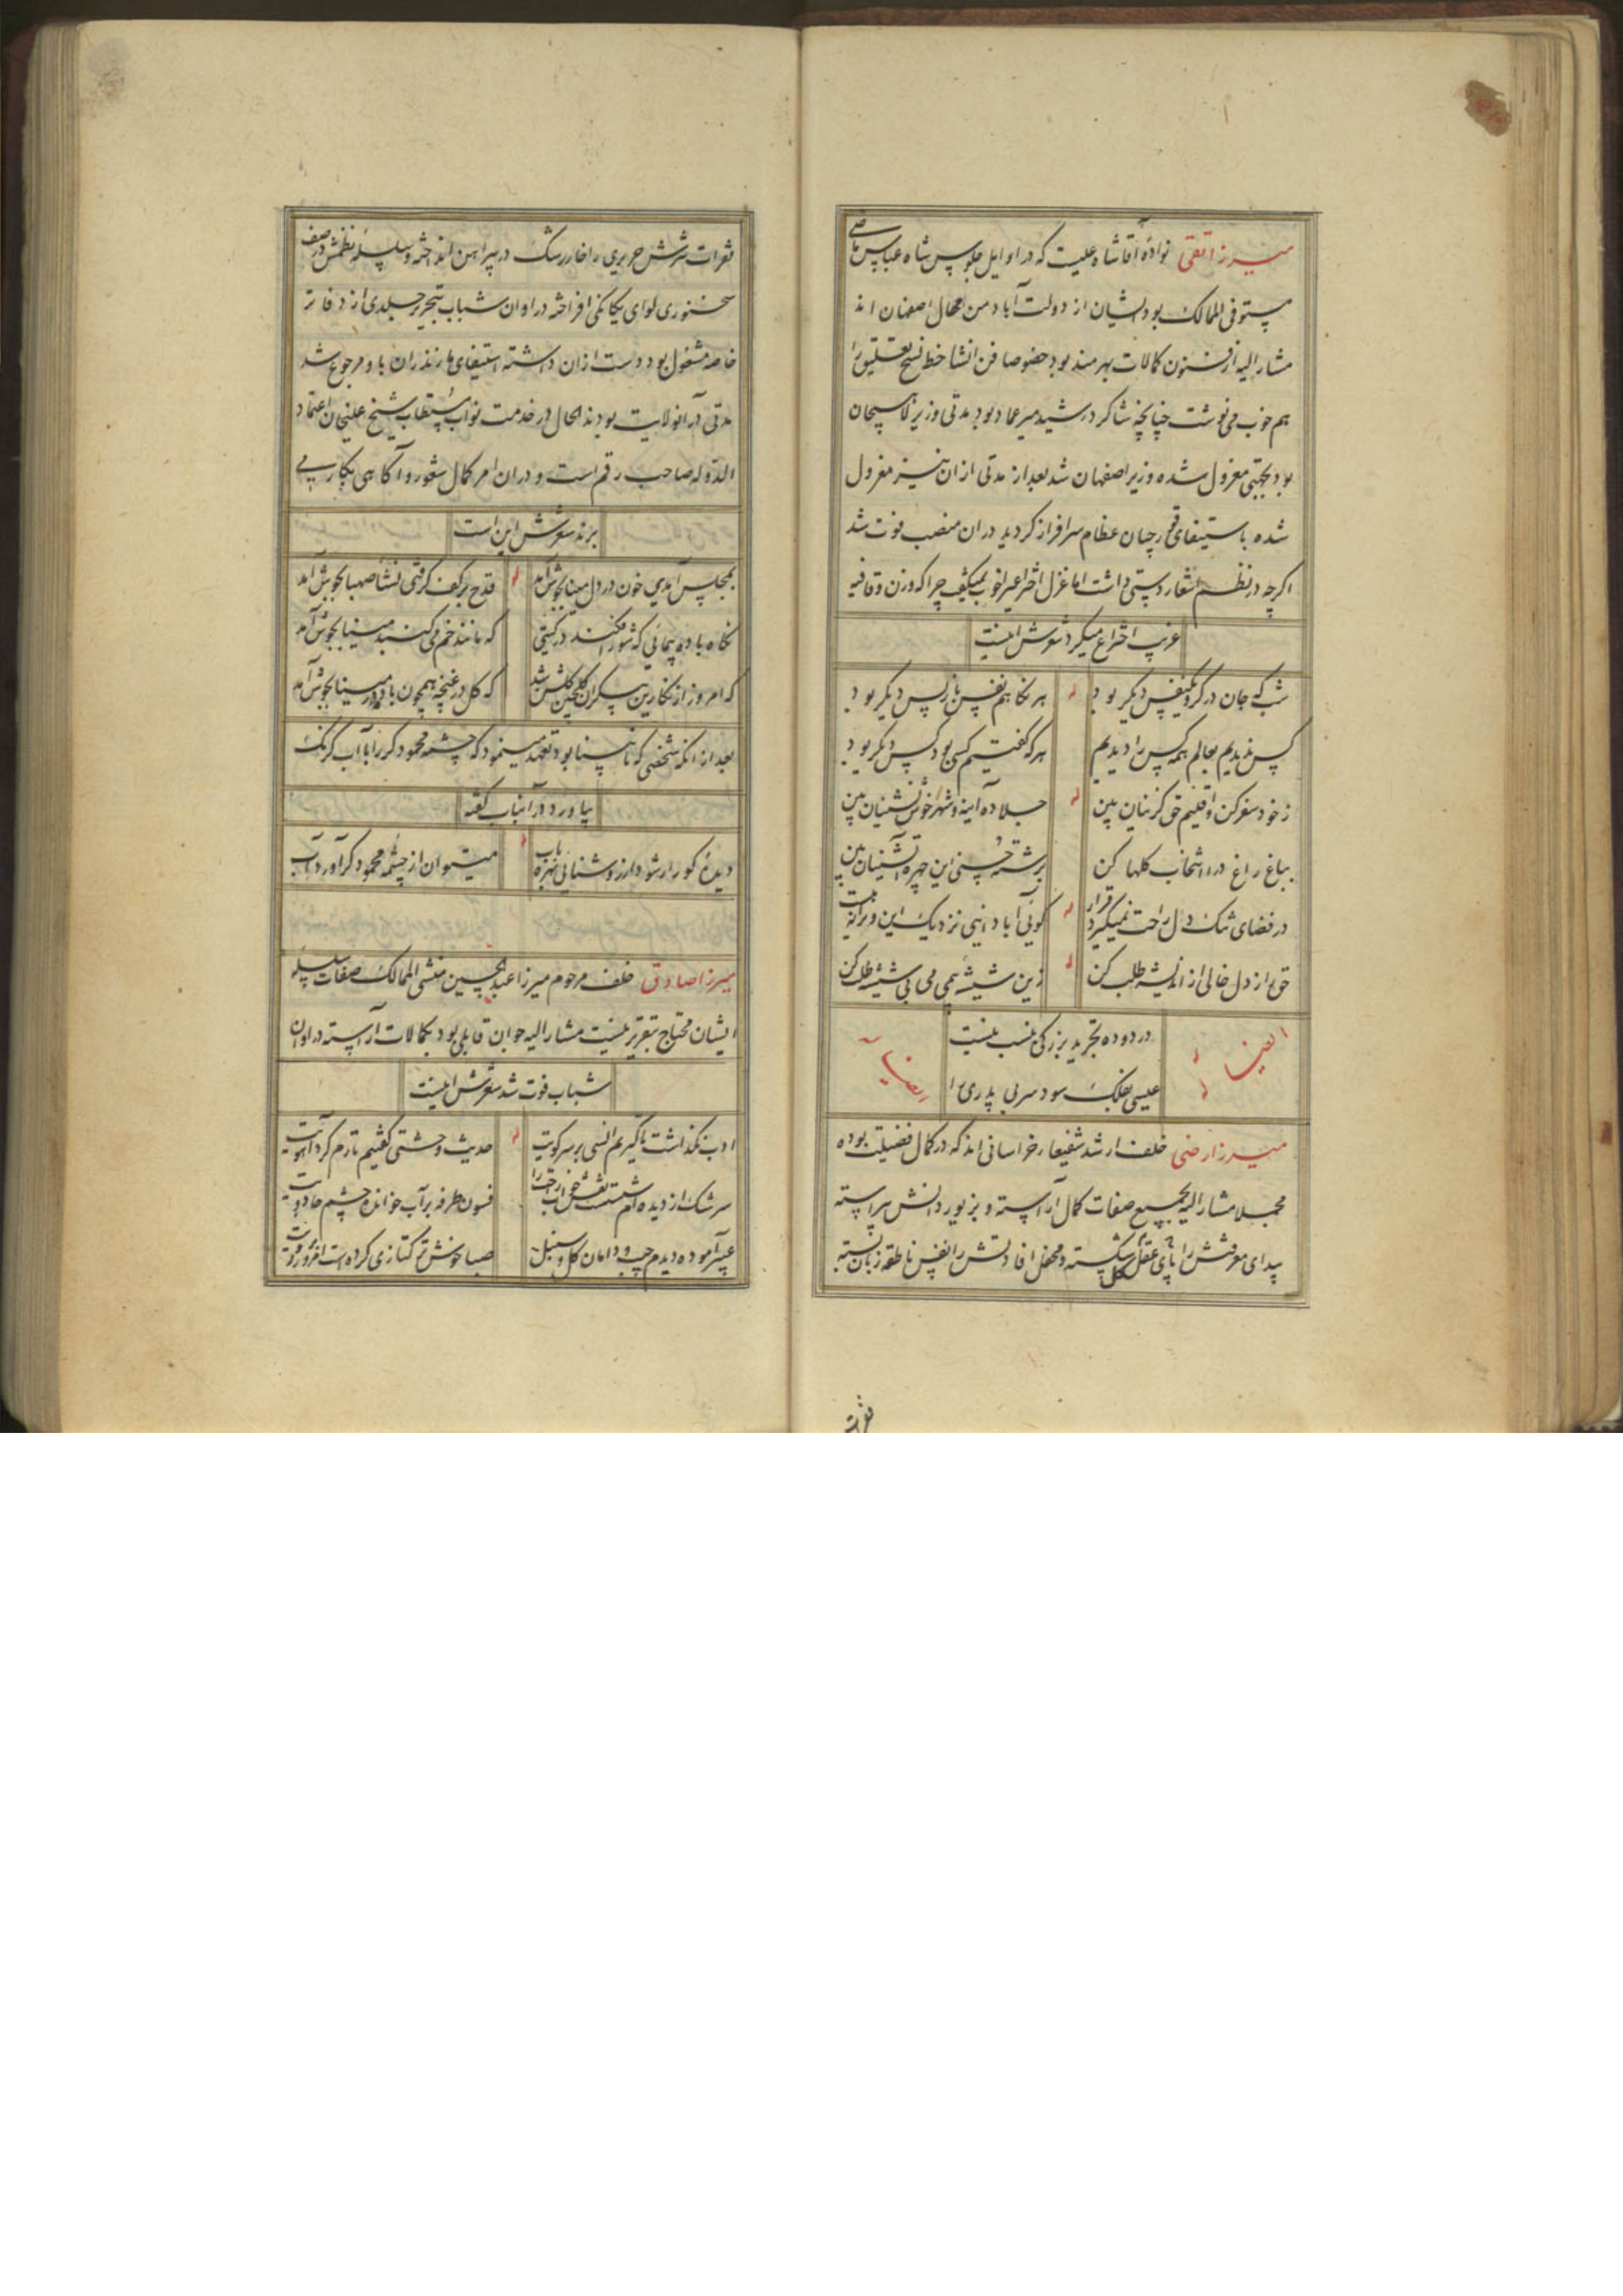 میرزا تقی نوادهٔ آقا شاه علیست که در اوایل جلوس شاه عباس ماضی
مستوفی الممالک بود ایشان از دولت آباد من اعمال اصفهان اند
مشار الیه از فنون کمالات بهره‌مند بود خصوصا فن انشا خط نسخ تعلیق را
هم خوب می نوشت چنانچه شاکرد رشید میر عماد بود مدتی وزیر لاهیجان
بود بجهتی معزول شده وزیر اصفهان شد بعد از مدتی ازان نیز معزول
شده باستیفای قورچیان عظام سرافراز کردید در ان منصب فوت شد
اکرچه در نظم اشعار دستی داشت اما غزل اختراعی را خوب نمیکفت چرا که وزن و قافیه
غریب اختراع میکرد شعرش اینست
شب که جان در کرو یکنفس دیکر بود
هر نکاهم نفس باز پس دیکر بود
کس ندیدیم بعالم همه کس را دیدیم
هر که کفتیم کسی بود کس دیکر بود
ز خود سفر کن و اقلیم حق کزینان بین
جلا ده آینه و شهر خوش نشینان بین
بباغ راغ در انتخاب کلها کن
برشته حسنی این چهره آتشینان بین
در فضای تنک دل راحت نمیکیرد قرار
کوئی آبادانیی نزدیک این ویرانه نیست
حق را ز دل خالی از اندیشه طلب کن
زین شیشهٔ بی می می بی شیشه طلب کن
ایضا
در دوده تجرید بزرکی بنسب نیست
عیسی بفلک سود سر بی پدری را
میرزا رضی خلف ارشد شفیعا خراسانی اند که در کمال فضیلت بوده
مجملا مشار الیه بجمیع صفات کمال آراسته و بزیور دانش پیراسته
بیدای معرفتش را پای عقل کل شکسته و محفل افادتش را نفس ناطقه زبان بسته
نثرات
ثمرات نثرش حریری را خار رشک در پیراهن انداخته و سلسله نظمش در صف
سخنوری لوای یکانکی افراخته در اوان شباب بتحریر جلدی از دفاتر
خاصه مشغول بود دست ازان داشته استیفای مازندران باو مرجوع شد
مدتی در آنولایت بودند الحال در خدمت نواب مستطاب شیخ علیخان اعتماد
الدوله صاحب رقم است و دران امر کمال شعور و آکاهی بکار می
برند شعرش این است
بمجلس آمدی خون در دل مینا بجوش آمد
قدح بر کف کرفتی نشأ صهبا بجوش آمد
نکاه باده پیمائی که شور افکند در کیتی
که مانند خم می کنبد مینا بجوش آمد
که امروز از نکارین پیکران کلچین کلشن شد
که کل در غنچه همچون باده در مینا بجوش آمد
بعد از انکه شخصی که نابینا بود تعهد مینمود که چشمه محمود کر را بآب کرنک
بیاورد در آنباب کفته
دیدهٔ کور ار شود از روشنائی بهره یاب
میتوان از چشمهٔ محمود کر آورد آب
میرزا صادق خلف مرحوم میرزا عبدالحسین منشی الممالک صفات سلسله
ایشان محتاج بتقریر نیست مشار الیه جوان قابلی بود بکمالات آراسته در اوان
شباب فوت شد شعرش اینست
ادب نکذاشت تا کیریم انسی بر سر کویت
حدیث وحشتی کفتیم تا رم کرد آهویت
سرشک از دیده ام شستست نقش خواب راحت را
فسون طرفه بر آب خوانده چشم جادویت
عبیر آموده دیدم جیب و دامان کل و سنبل
صبا خوش ترکتازی کرده است امروز در مویت